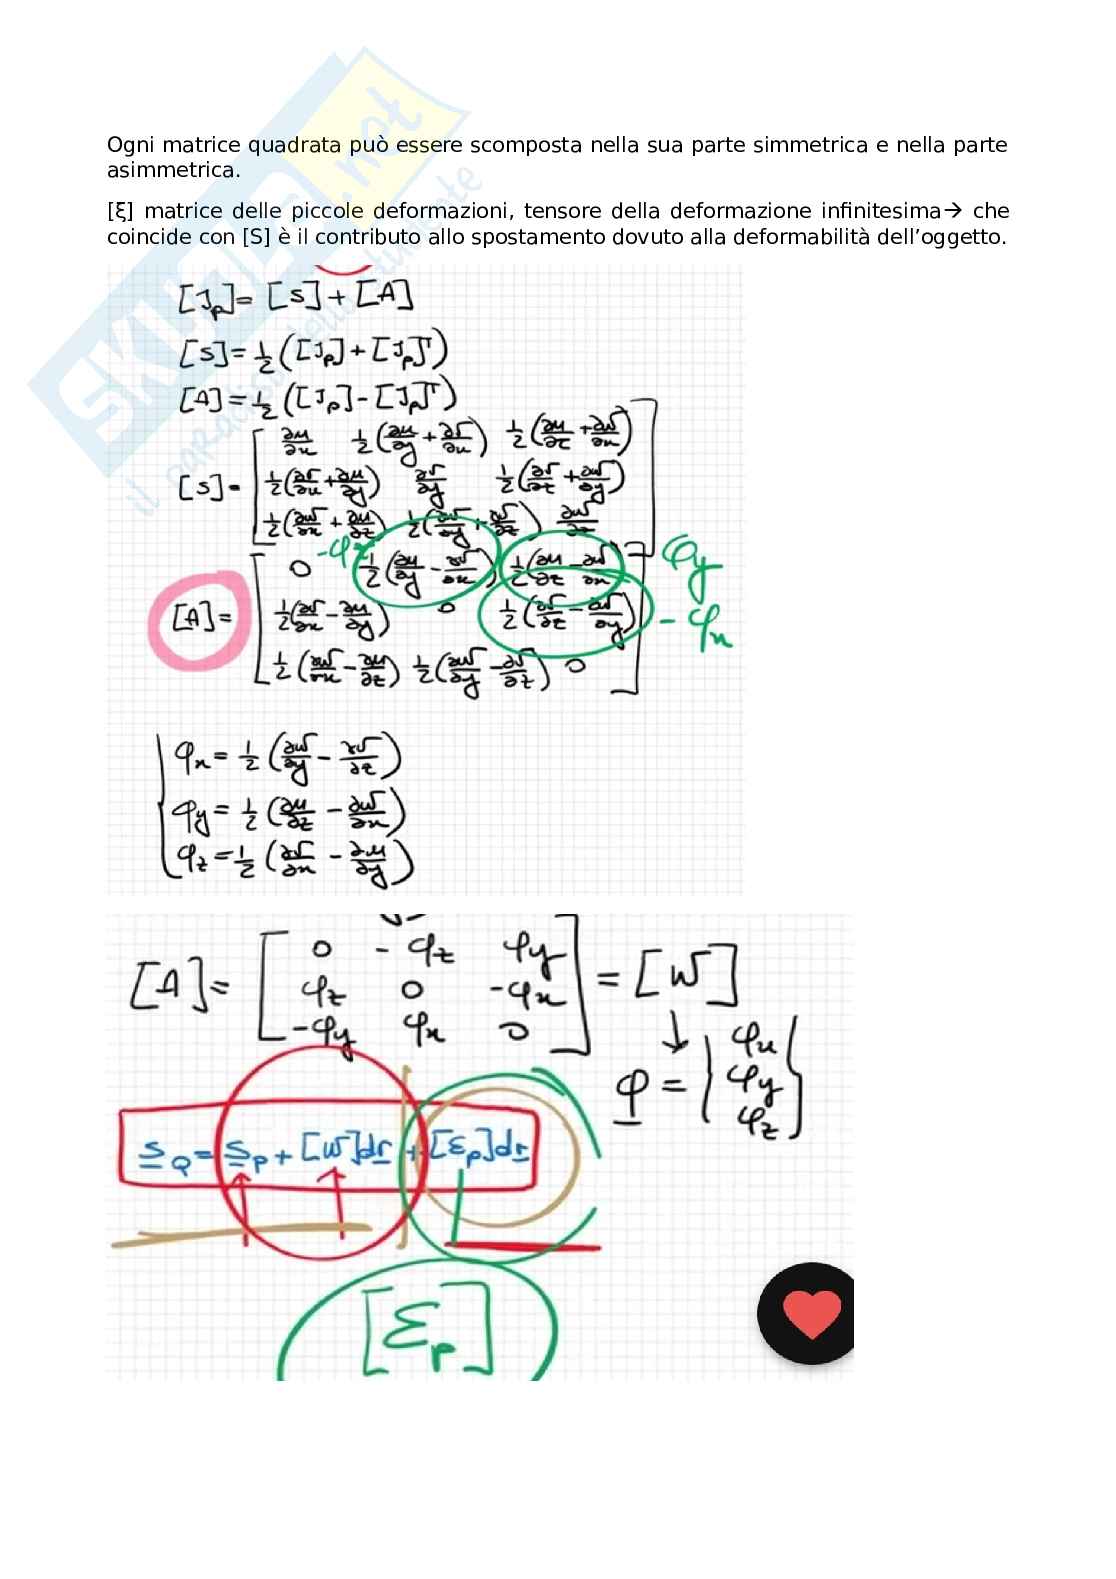 Ogni matrice quadrata può essere scomposta nella sua parte simmetrica e nella parte
asimmetrica.
[ξ] matrice delle piccole deformazioni, tensore della deformazione infinitesima→ che
coincide con [S] è il contributo allo spostamento dovuto alla deformabilità dell’oggetto.
SKUOLA.net
il paradiso dello studente
[J_p] = [S] + [A]
[S] = 1/2 ([J_p] + [J_p]^T)
[A] = 1/2 ([J_p] - [J_p]^T)
[S] = [ ∂u/∂x   1/2 (∂u/∂y + ∂v/∂x)   1/2 (∂u/∂z + ∂w/∂x)
1/2 (∂v/∂x + ∂u/∂y)   ∂v/∂y   1/2 (∂v/∂z + ∂w/∂y)
1/2 (∂w/∂x + ∂u/∂z)   1/2 (∂w/∂y + ∂v/∂z)   ∂w/∂z ]
[A] = [ 0   -φz   1/2 (∂u/∂y - ∂v/∂x)   1/2 (∂u/∂z - ∂w/∂x)   φy
1/2 (∂v/∂x - ∂u/∂y)   0   1/2 (∂v/∂z - ∂w/∂y)   -φx
1/2 (∂w/∂x - ∂u/∂z)   1/2 (∂w/∂y - ∂v/∂z)   0 ]
φx = 1/2 (∂w/∂y - ∂v/∂z)
φy = 1/2 (∂u/∂z - ∂w/∂x)
φz = 1/2 (∂v/∂x - ∂u/∂y)
[A] = [ 0   -φz   φy
φz   0   -φx
-φy   φx   0 ] = [W]
↓
φ = { φx
φy
φz }
s_Q = s_P + [W]dr + [ε_p]dr
[ε_p]